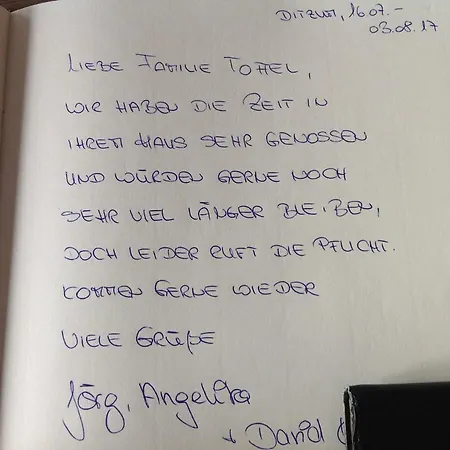 DITZUM, 16.07.-
03.08.17
LIEBE FAMILIE TOFFEL,
WIR HABEN DIE ZEIT IN
IHREM HAUS SEHR GENOSSEN
UND WÜRDEN GERNE NOCH
SEHR VIEL LÄNGER BLEIBEN,
DOCH LEIDER RUFT DIE PFLICHT.
KOMMEN GERNE WIEDER
VIELE GRÜßE
Jörg, Angelika
+ David